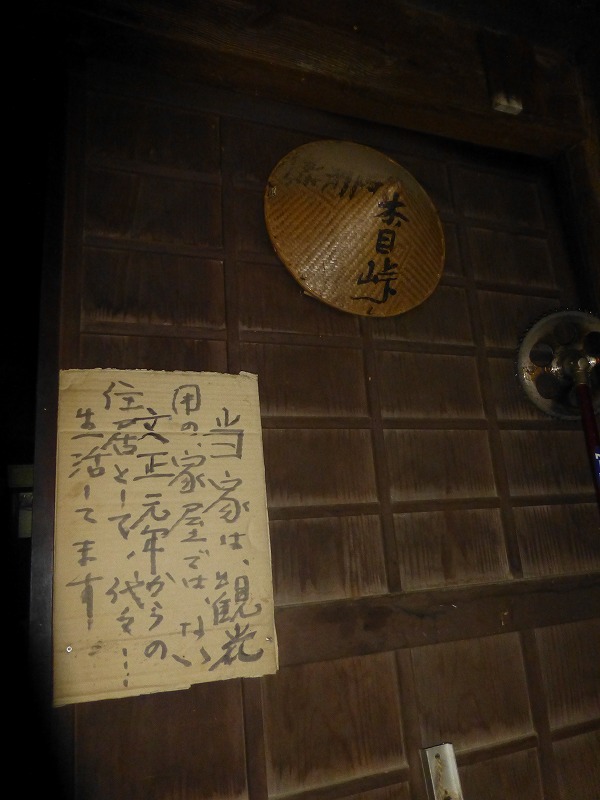 木目峠
当家は、観光
用の、家屋では、ない
文正元年からの
住居として、代々…
生活してます